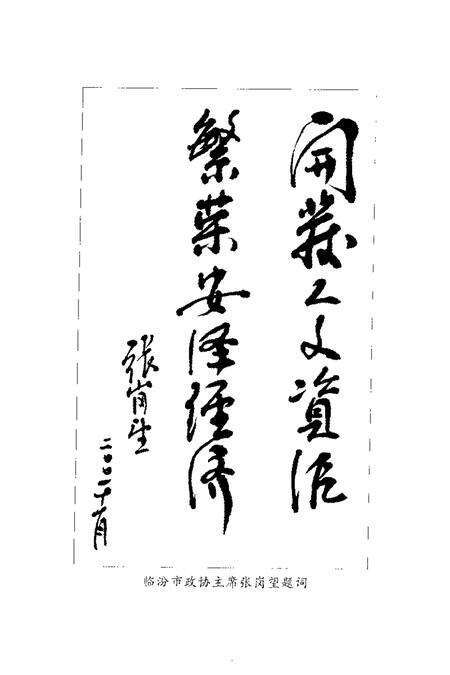 開發人文資源
繁荣安泽經济
張岗望
二〇〇一十月
临汾市政协主席张岗望题词